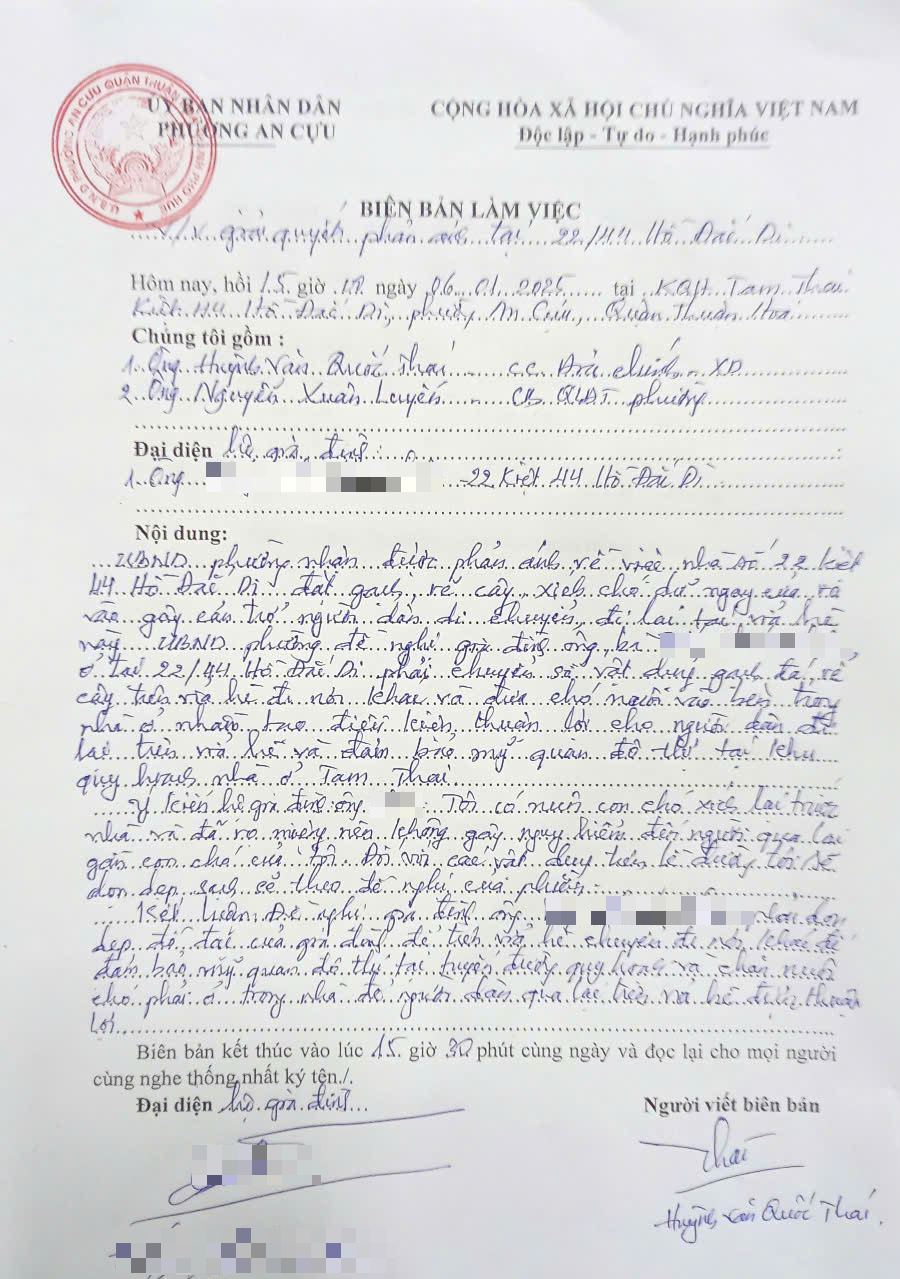 ỦY BAN NHÂN DÂN
PHƯỜNG AN CỰU
CỘNG HÒA XÃ HỘI CHỦ NGHĨA VIỆT NAM
Độc lập - Tự do - Hạnh phúc
BIÊN BẢN LÀM VIỆC
V/v giải quyết phản ánh tại 22/44 Hồ Đắc Di
Hôm nay, hồi 15 giờ 10 ngày 06.01.2025 tại KQH Tam Thai
Kiệt 44 Hồ Đắc Di, phường An Cựu, Quận Thuận Hoá
Chúng tôi gồm :
1. Ông Huỳnh Văn Quốc Thái CC Địa chính - XD
2. Ông Nguyễn Xuân Luyến CB QLĐT phường
Đại diện hộ gia đình :
1. Ông 22 Kiệt 44 Hồ Đắc Di
Nội dung:
UBND phường nhận được phản ánh về việc nhà số 22 kiệt
44 Hồ Đắc Di đặt gạch, rễ cây, xích chó dữ ngay cửa ra
vào gây cản trở người dân di chuyển, đi lại tại vỉa hè
này. UBND phường đề nghị gia đình ông, bà
ở tại 22/44 Hồ Đắc Di phải chuyển số vật dụng gạch đá, rễ
cây trên vỉa hè đi nơi khác và đưa chó nuôi vào bên trong
nhà ở nhằm tạo điều kiện thuận lợi cho người dân đi
lại trên vỉa hè và đảm bảo mỹ quan đô thị tại khu
quy hoạch nhà ở Tam Thai
Ý kiến hộ gia đình ông : Tôi có nuôi con chó xích lại trước
nhà và đã rọ miệng nên không gây nguy hiểm đến người qua lại
gần con chó của tôi. Đối với các vật dụng trên lề đường tôi sẽ
dọn dẹp sạch sẽ theo đề nghị của phường.
Kết luận: Đề nghị gia đình ông phải dọn
dẹp đồ đạc của gia đình để trên vỉa hè chuyển đi nơi khác để
đảm bảo mỹ quan đô thị tại tuyến đường quy hoạch và chăn nuôi
chó phải ở trong nhà để người dân qua lại trên vỉa hè được thuận
lợi
Biên bản kết thúc vào lúc 15 giờ 30 phút cùng ngày và đọc lại cho mọi người
cùng nghe thống nhất ký tên./.
Đại diện hộ gia đình
Người viết biên bản
Thái
Huỳnh Văn Quốc Thái